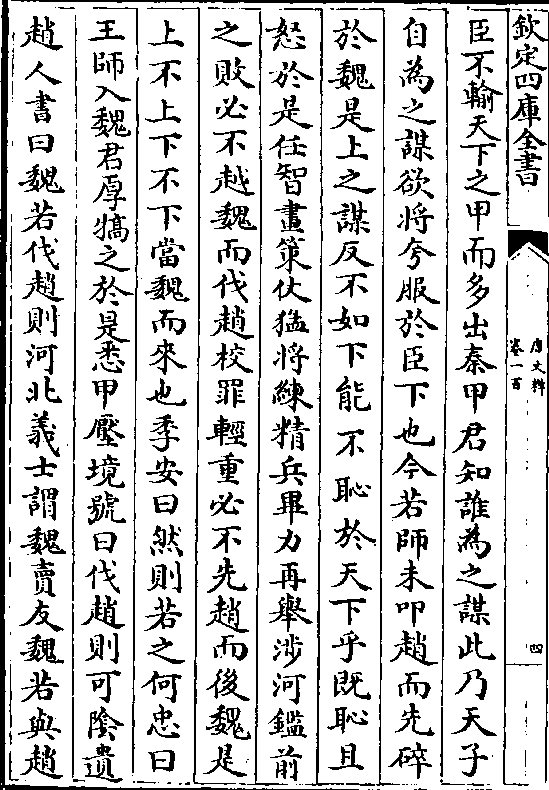 欽定四庫全書
唐文粹
卷一百
四
臣不輸天下之甲而多出秦甲君知誰為之謀此乃天子
自為之謀欲將夸服於臣下也今若師未叩趙而先碎
於魏是上之謀反不如下能不恥於天下乎既恥且
怒於是任智畫策仗猛將練精兵畢力再舉涉河鑑前
之敗必不越魏而伐趙校罪輕重必不先趙而後魏是
上不上下不下當魏而來也季安曰然則若之何忠曰
王師入魏君厚犒之於是悉甲壓境號曰伐趙則可陰遺
趙人書曰魏若伐趙則河北義士謂魏賣友魏若與趙